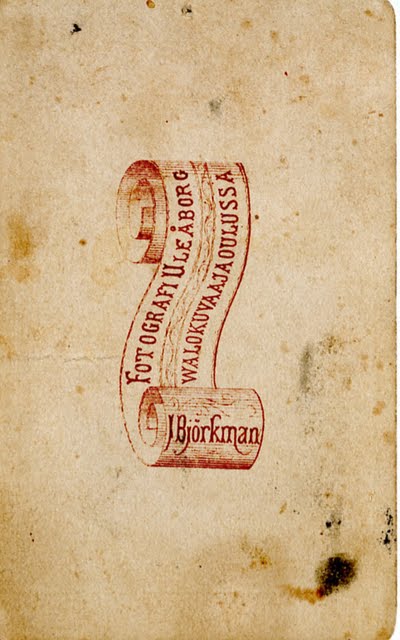 FOTOGRAFI ULEÅBORG
WALOKUVAAJA OULUSSA
J Björkman